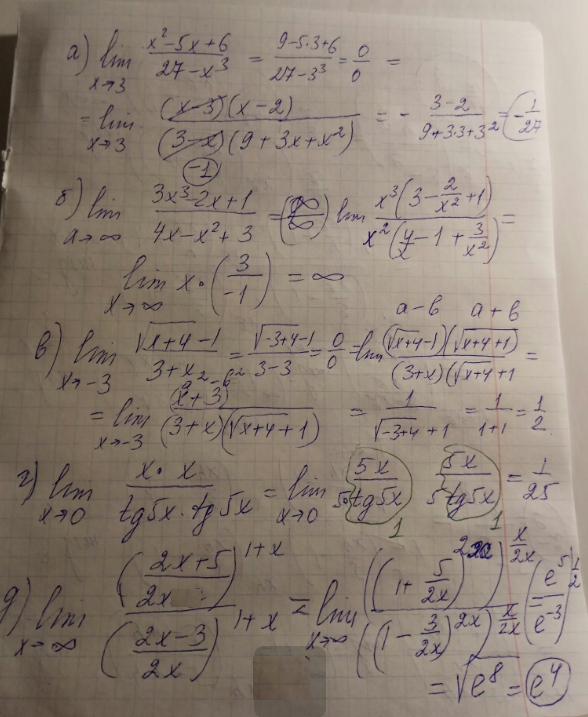 а) lim x→3 (x²-5x+6)/(27-x³) = (9-5·3+6)/(27-3³) = 0/0 =
= lim x→3 ((x-3)(x-2))/((3-x)(9+3x+x²)) = - (3-2)/(9+3·3+3²) = -1/27
-1
б) lim x→∞ (3x³-2x+1)/(4x-x²+3) = (∞/∞) lim (x³(3-2/x²+1))/(x²(4/x-1+3/x²)) =
lim x→∞ x·(3/-1) = ∞
a-b a+b
в) lim x→-3 (√(x+4)-1)/(3+x) = (√(-3+4)-1)/(3-3) = 0/0 = lim ((√(x+4)-1)(√(x+4)+1))/((3+x)(√(x+4)+1) =
a²-b²
= lim x→-3 (x+3)/((3+x)(√(x+4)+1)) = 1/(√(-3+4)+1) = 1/(1+1) = 1/2
г) lim x→0 (x·x)/(tg5x·tg5x) = lim x→0 5x/(5·tg5x) 5x/(5tg5x) = 1/25
1 1
д) lim x→∞ ((2x+5)/2x)^(1+x)/((2x-3)/2x)^(1+x) = lim x→∞ ((1+5/2x)^2x)^(x/2x)/((1-3/2x)^2x)^(x/2x) = (e⁵/e⁻³)^(1/2)
= √e⁸ = e⁴